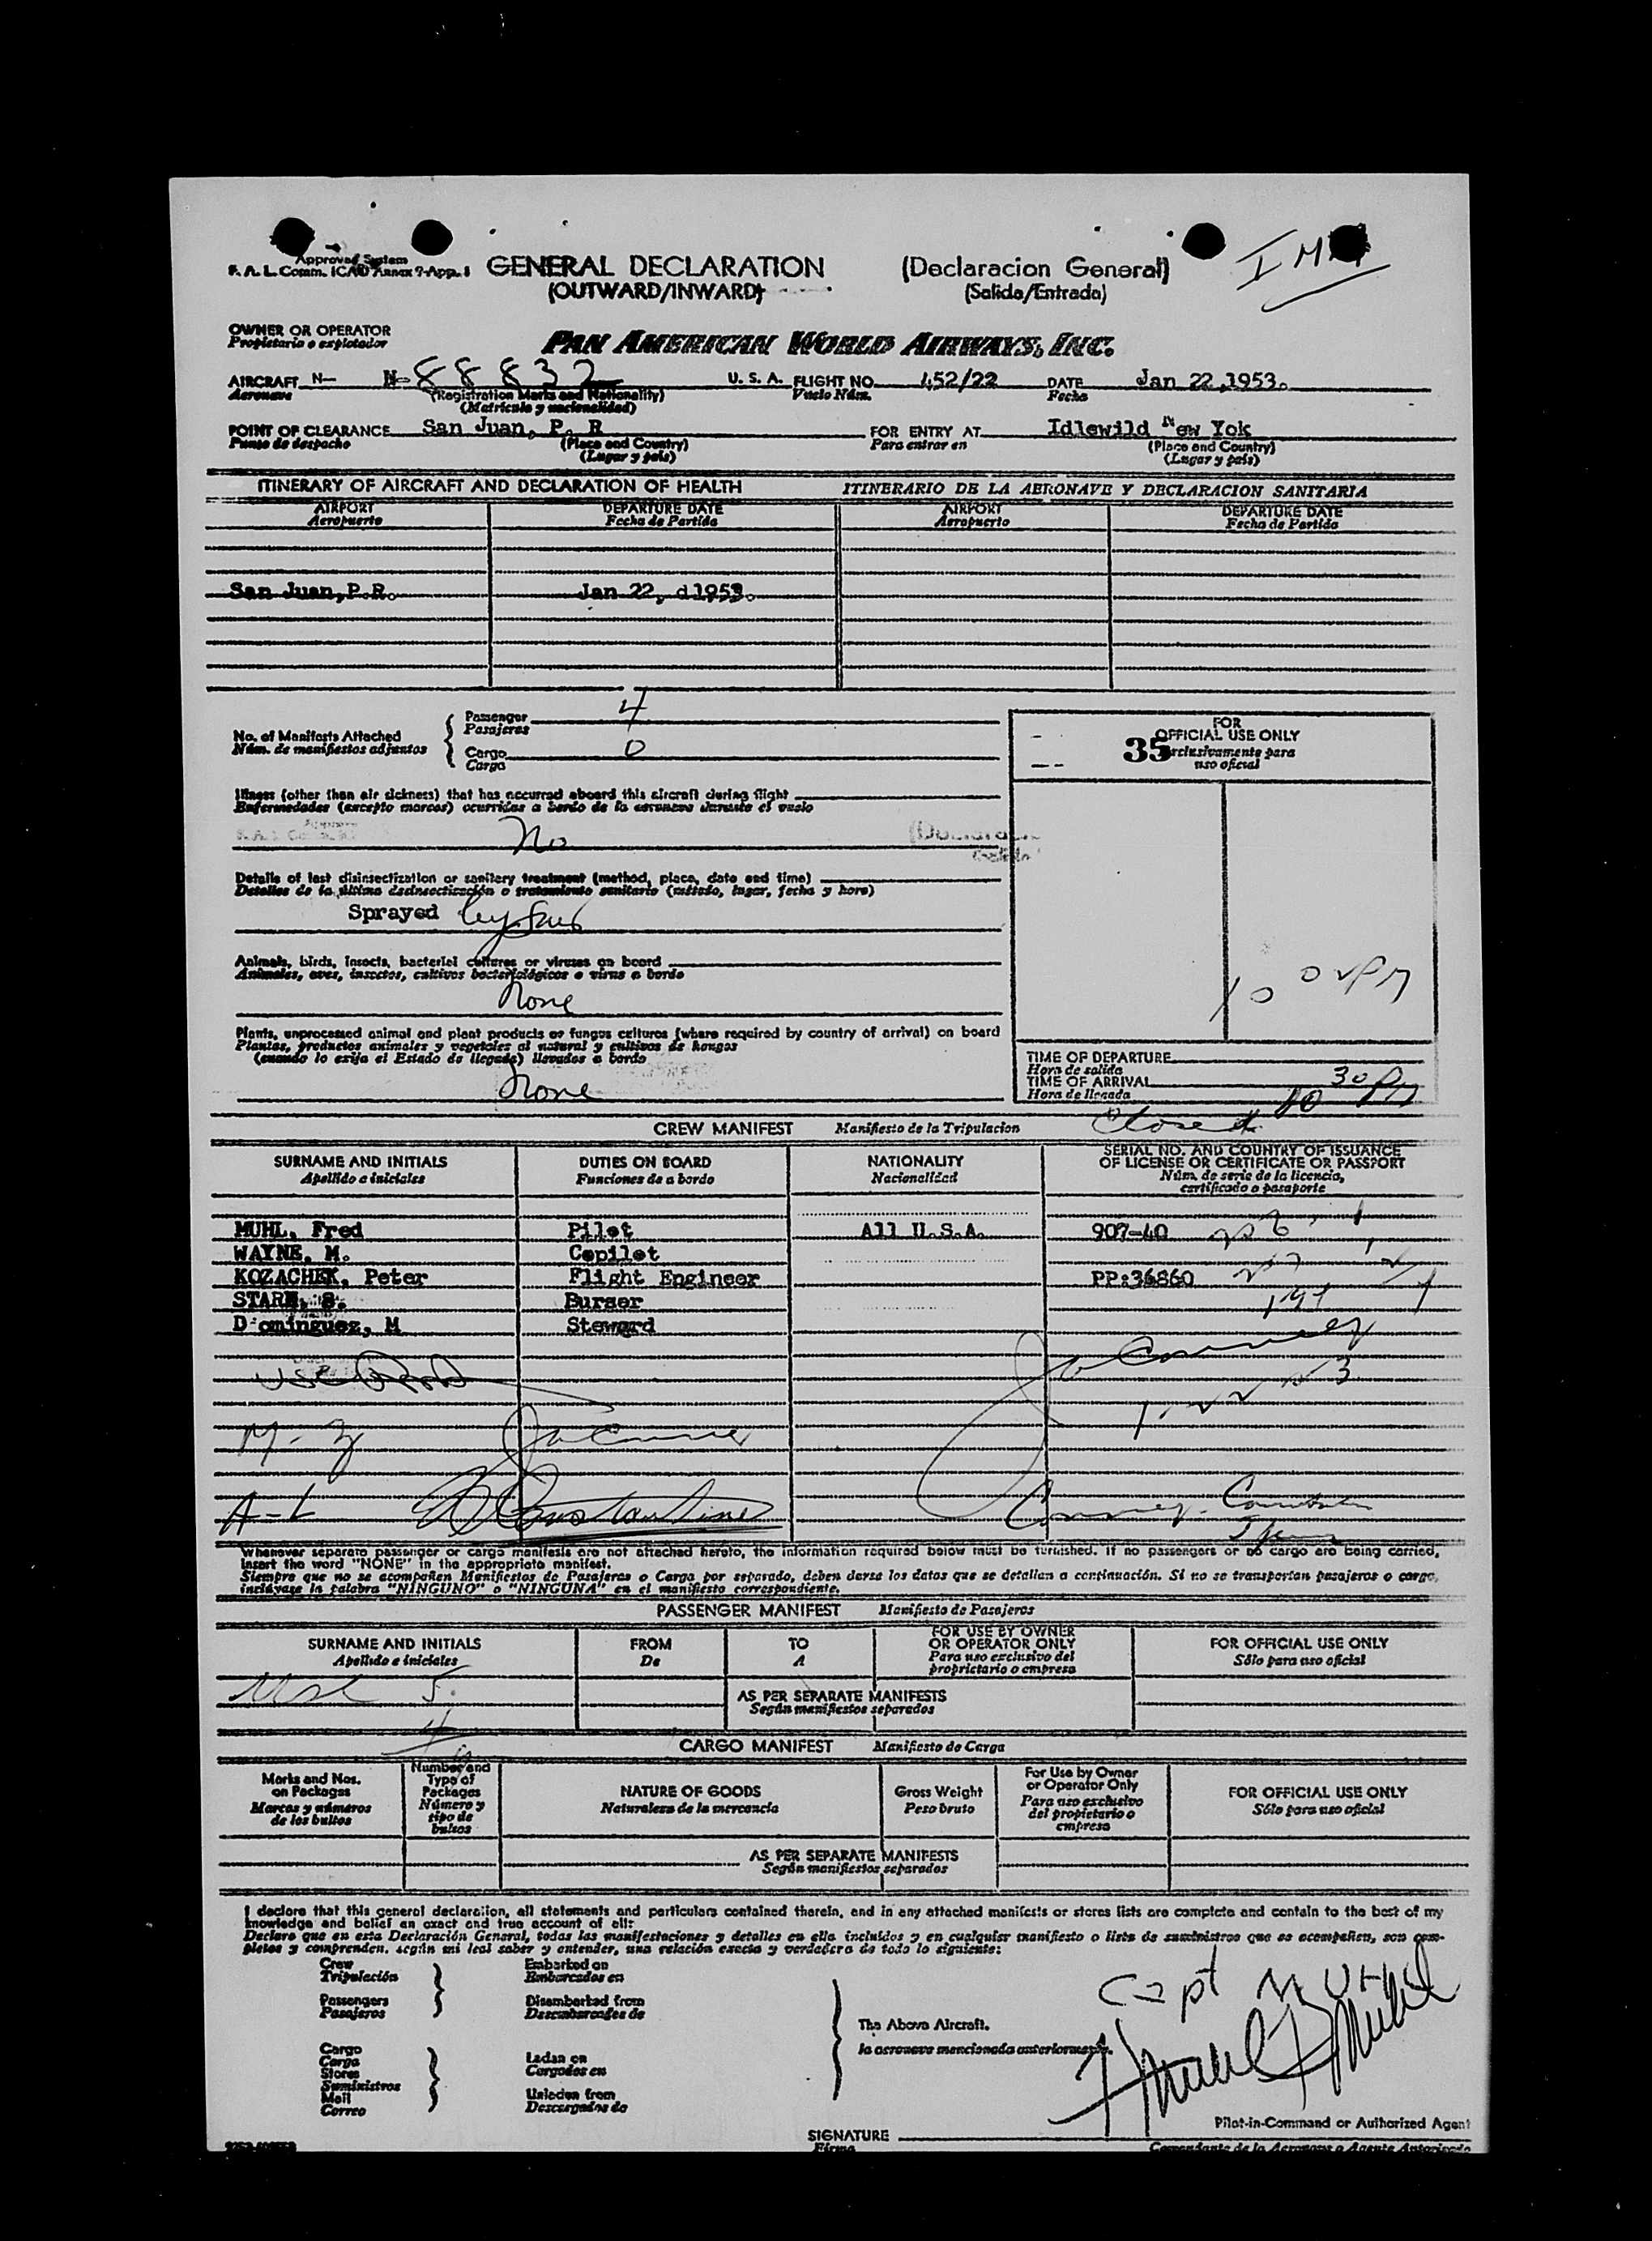 Approved System
F. A. L. Comm. ICAO Annex 9-App. 1
GENERAL DECLARATION (Declaracion General)
(OUTWARD/INWARD) (Salida/Entrada)
OWNER OR OPERATOR
Propietario o explotador
PAN AMERICAN WORLD AIRWAYS, INC.
AIRCRAFT N- N-88832 U. S. A. FLIGHT NO. 452/22 DATE Jan 22,1953.
Aeronave (Registration Marks and Nationality) Vuelo Núm. Fecha
(Matrícula y nacionalidad)
POINT OF CLEARANCE San Juan, P. R FOR ENTRY AT Idlewild New Yok
Punto de despacho (Place and Country) Para entrar en (Place and Country)
(Lugar y país) (Lugar y país)
ITINERARY OF AIRCRAFT AND DECLARATION OF HEALTH ITINERARIO DE LA AERONAVE Y DECLARACION SANITARIA
AIRPORT DEPARTURE DATE AIRPORT DEPARTURE DATE
Aeropuerto Fecha de Partida Aeropuerto Fecha de Partida
San Juan,P.R. Jan 22, d1953.
No. of Manifests Attached
Núm. de manifiestos adjuntos
Passenger 4
Pasajeros
Cargo 0
Carga
FOR
OFFICIAL USE ONLY
35 exclusivamente para
uso oficial
Illness (other than air sickness) that has occurred aboard this aircraft during flight
Enfermedades (excepto mareos) ocurridas a bordo de la aeronave durante el vuelo
No
Details of last disinsectization or sanitary treatment (method, place, date and time)
Detalles de la última desinsectización o tratamiento sanitario (método, lugar, fecha y hora)
Sprayed
Animals, birds, insects, bacterial cultures or viruses on board
Animales, aves, insectos, cultivos bacteriológicos o virus a bordo
None
Plants, unprocessed animal and plant products or fungus cultures (where required by country of arrival) on board
Plantas, productos animales y vegetales al natural y cultivos de hongos
(cuando lo exija el Estado de llegada) llevados a bordo
None
TIME OF DEPARTURE
Hora de salida
TIME OF ARRIVAL
Hora de llegada
10 30 PM
Closed
CREW MANIFEST Manifiesto de la Tripulacion
SURNAME AND INITIALS DUTIES ON BOARD NATIONALITY SERIAL NO. AND COUNTRY OF ISSUANCE
OF LICENSE OR CERTIFICATE OR PASSPORT
Apellido e iniciales Funciones de a bordo Nacionalidad Núm. de serie de la licencia,
certificado o pasaporte
MUHL, Fred Pilot All U.S.A. 907-40
WAYNE, M. Copilot
KOZACHEK, Peter Flight Engineer PP:36860
STARK, S. Burser
D'ominguez, M Steward
A-L Constantine
Whenever separate passenger or cargo manifests are not attached hereto, the information required below must be furnished. If no passengers or no cargo are being carried,
insert the word "NONE" in the appropriate manifest.
Siempre que no se acompañen Manifiestos de Pasajeros o Carga por separado, deben darse los datos que se detallan a continuación. Si no se transportan pasajeros o carga,
inclúyase la palabra "NINGUNO" o "NINGUNA" en el manifiesto correspondiente.
PASSENGER MANIFEST Manifiesto de Pasajeros
SURNAME AND INITIALS FROM TO FOR USE BY OWNER
OR OPERATOR ONLY FOR OFFICIAL USE ONLY
Apellido e iniciales De A Para uso exclusivo del
proprietario o empresa Sólo para uso oficial
AS PER SEPARATE MANIFESTS
Según manifiestos separados
CARGO MANIFEST Manifiesto de Carga
Marks and Nos.
on Packages
Marcas y números
de los bultos
Number and
Type of
Packages
Número y
tipo de
bultos
NATURE OF GOODS
Naturaleza de la mercancía
Gross Weight
Peso bruto
For Use by Owner
or Operator Only
Para uso exclusivo
del propietario o
empresa
FOR OFFICIAL USE ONLY
Sólo para uso oficial
AS PER SEPARATE MANIFESTS
Según manifiestos separados
I declare that this general declaration, all statements and particulars contained therein, and in any attached manifests or stores lists are complete and contain to the best of my
knowledge and belief an exact and true account of all:
Declaro que en esta Declaración General, todas las manifestaciones y detalles en ella incluídos y en cualquier manifiesto o lista de suministros que se acompañen, son com-
pletos y comprenden, según mi leal saber y entender, una relación exacta y verdadera de todo lo siguiente:
Crew
Tripulación
Passengers
Pasajeros
Embarked on
Embarcados en
Disembarked from
Desembarcados de
Cargo
Carga
Stores
Suministros
Mail
Correo
Laden on
Cargados en
Unladen from
Descargados de
The Above Aircraft.
la aeronave mencionada anteriormente.
Capt MUHL
Pilot-in-Command or Authorized Agent
SIGNATURE
Firma
Comandante de la Aeronave o Agente Autorizado